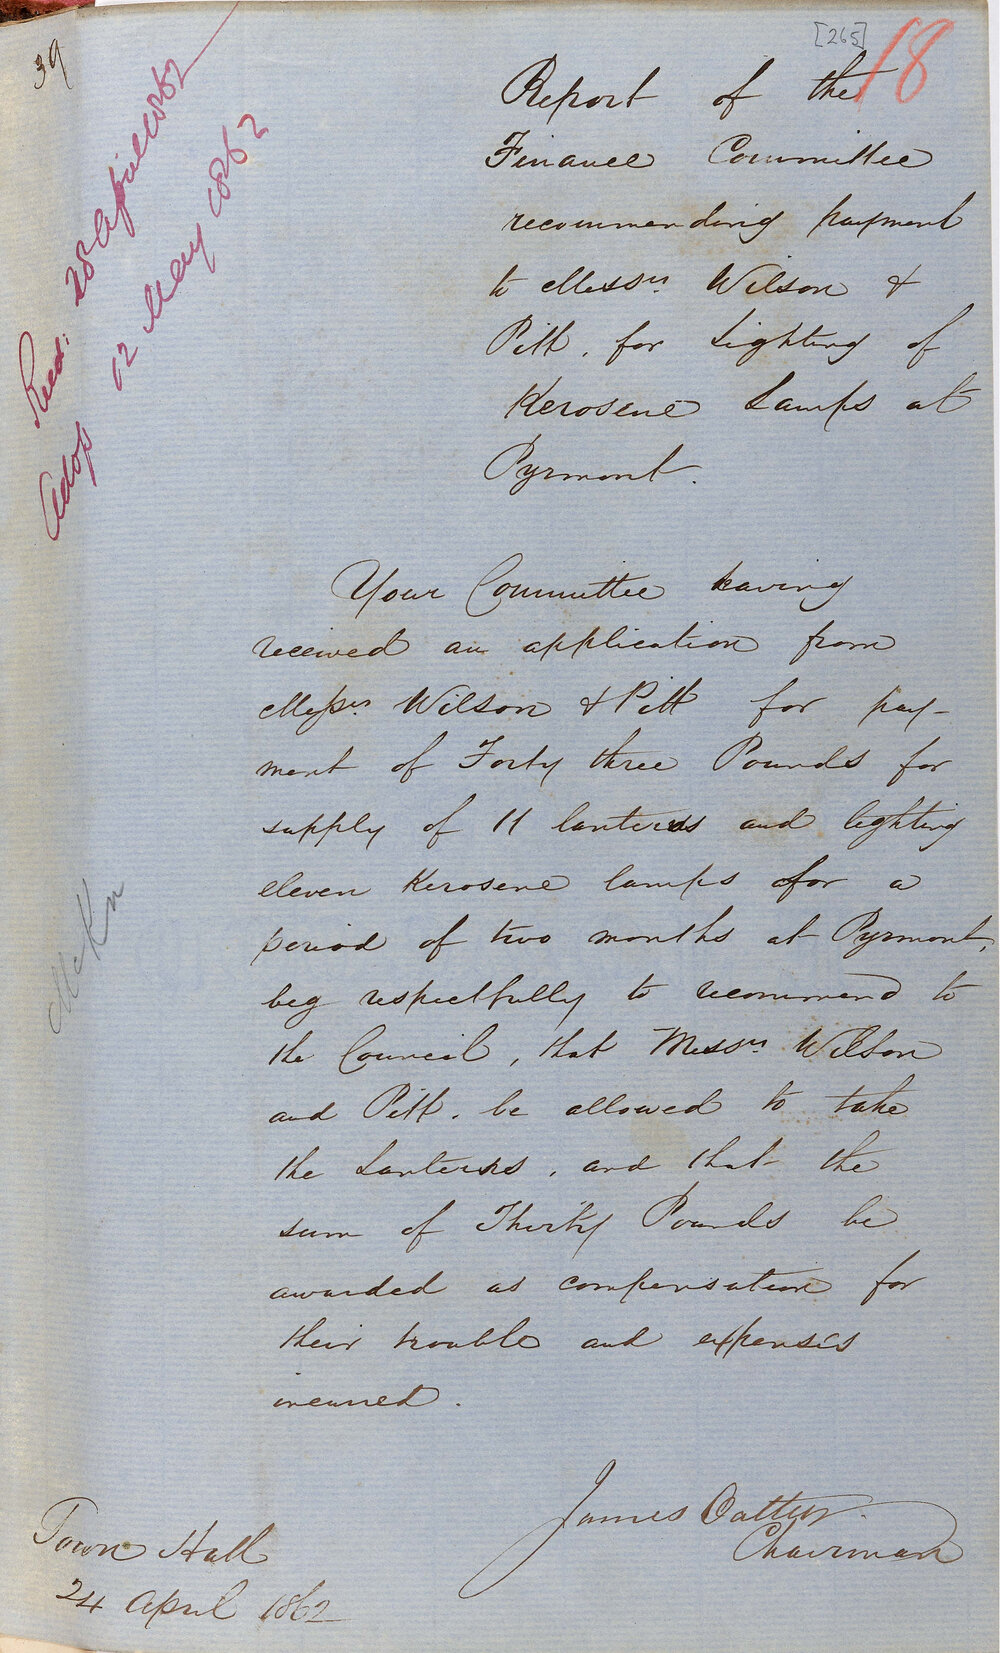 39
[265]
18
Recd. 28 April 1862
Adop 12 May 1862
Report of the
Finance Committee
recommending payment
to Messrs Wilson &
Pitt, for Lighting of
Kerosene Lamps at
Pyrmont.
Your Committee having
received an application from
Messrs Wilson & Pitt for pay-
ment of Forty three Pounds for
supply of 11 lanterns and lighting
eleven Kerosene lamps for a
period of two months at Pyrmont,
beg respectfully to recommend to
the Council, that Messrs Wilson
and Pitt, be allowed to take
the Lanterns, and that the
sum of Thirty Pounds be
awarded as compensation for
their trouble and expenses
incurred.
McKn
James Oatley
Chairman
Town Hall
24 April 1862